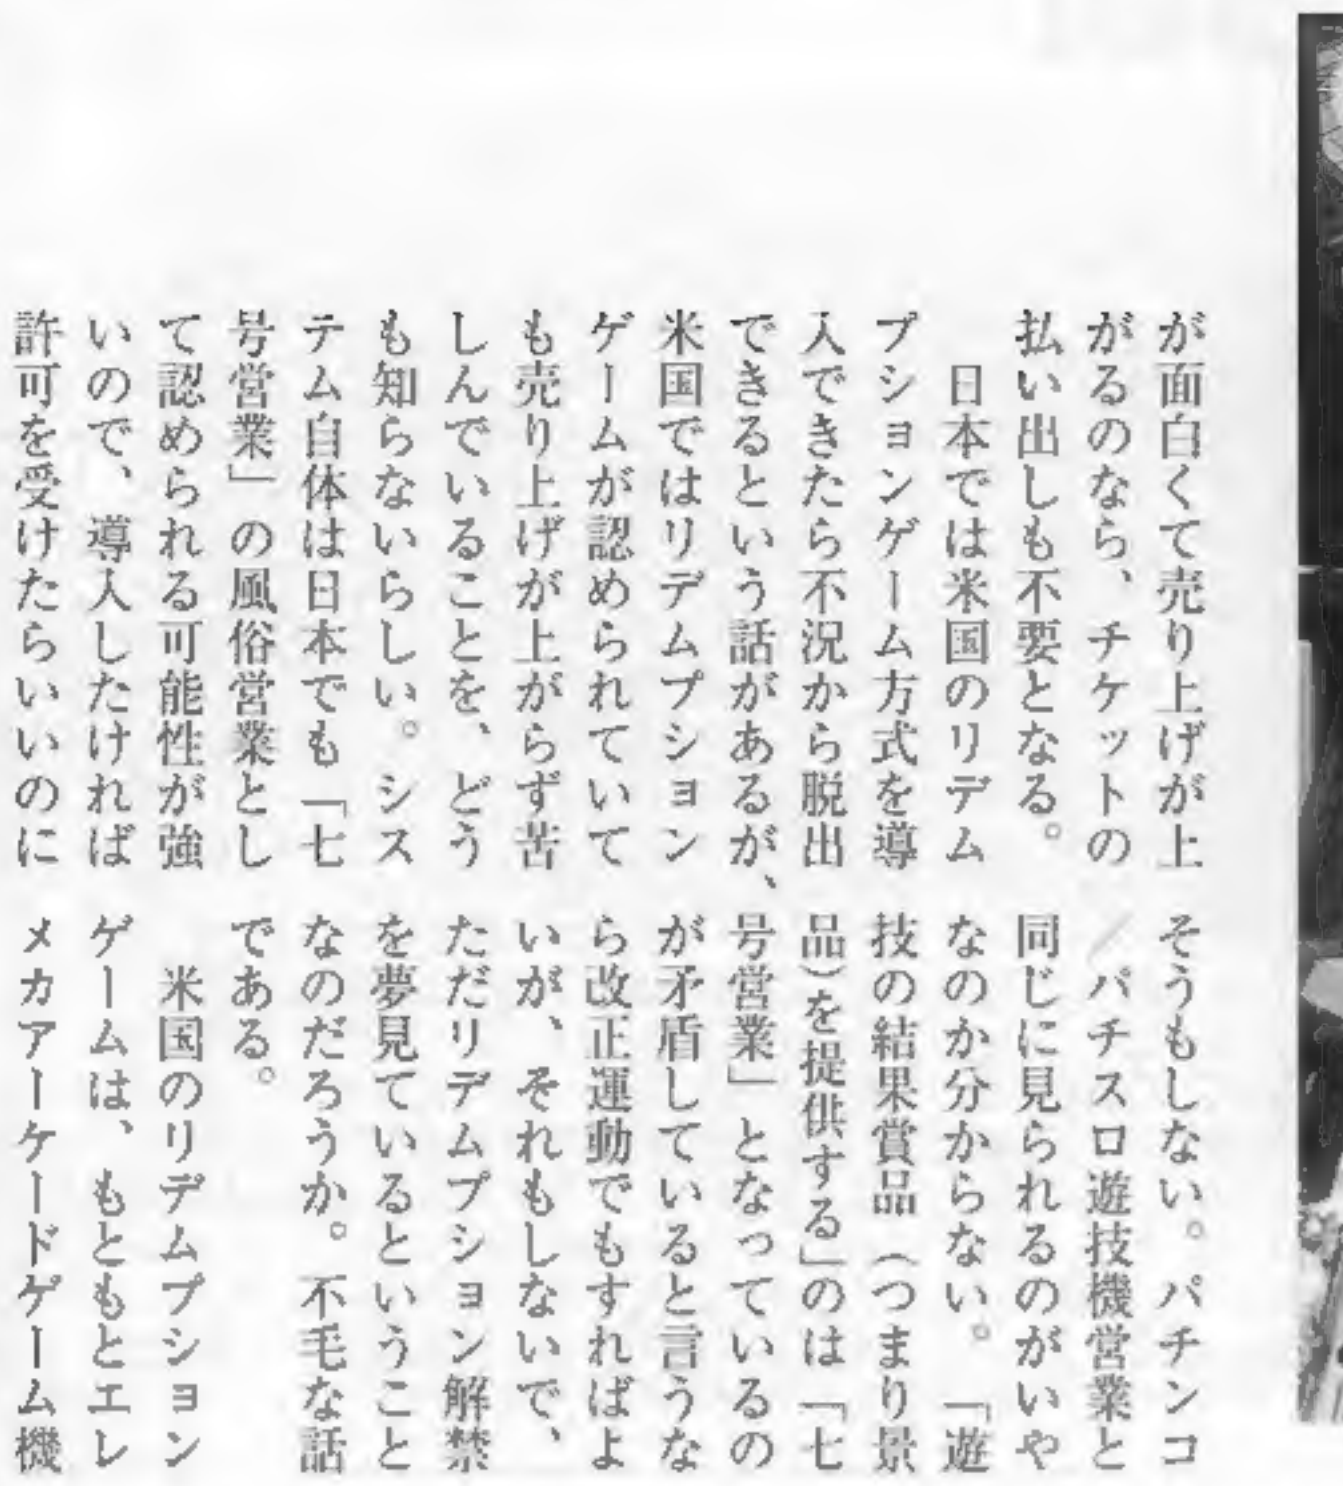 が面白くて売り上げが上
がるのなら、チケットの
払い出しも不要となる。
日本では米国のリデム
プションゲーム方式を導
入できたら不況から脱出
できるという話があるが、
米国ではリデムプション
ゲームが認められていて
も売り上げが上がらず苦
しんでいることを、どう
も知らないらしい。シス
テム自体は日本でも「七
号営業」の風俗営業とし
て認められる可能性が強
いので、導入したければ
許可を受けたらいいのに
そうもしない。パチンコ
／パチスロ遊技機営業と
同じに見られるのがいや
なのか分からない。「遊
技の結果賞品（つまり景
品）を提供する」のは「七
号営業」となっているの
が矛盾していると言うな
ら改正運動でもすればよ
いが、それもしないで、
ただリデムプション解禁
を夢見ているということ
なのだろうか。不毛な話
である。
米国のリデムプション
ゲームは、もともとエレ
メカアーケードゲーム機